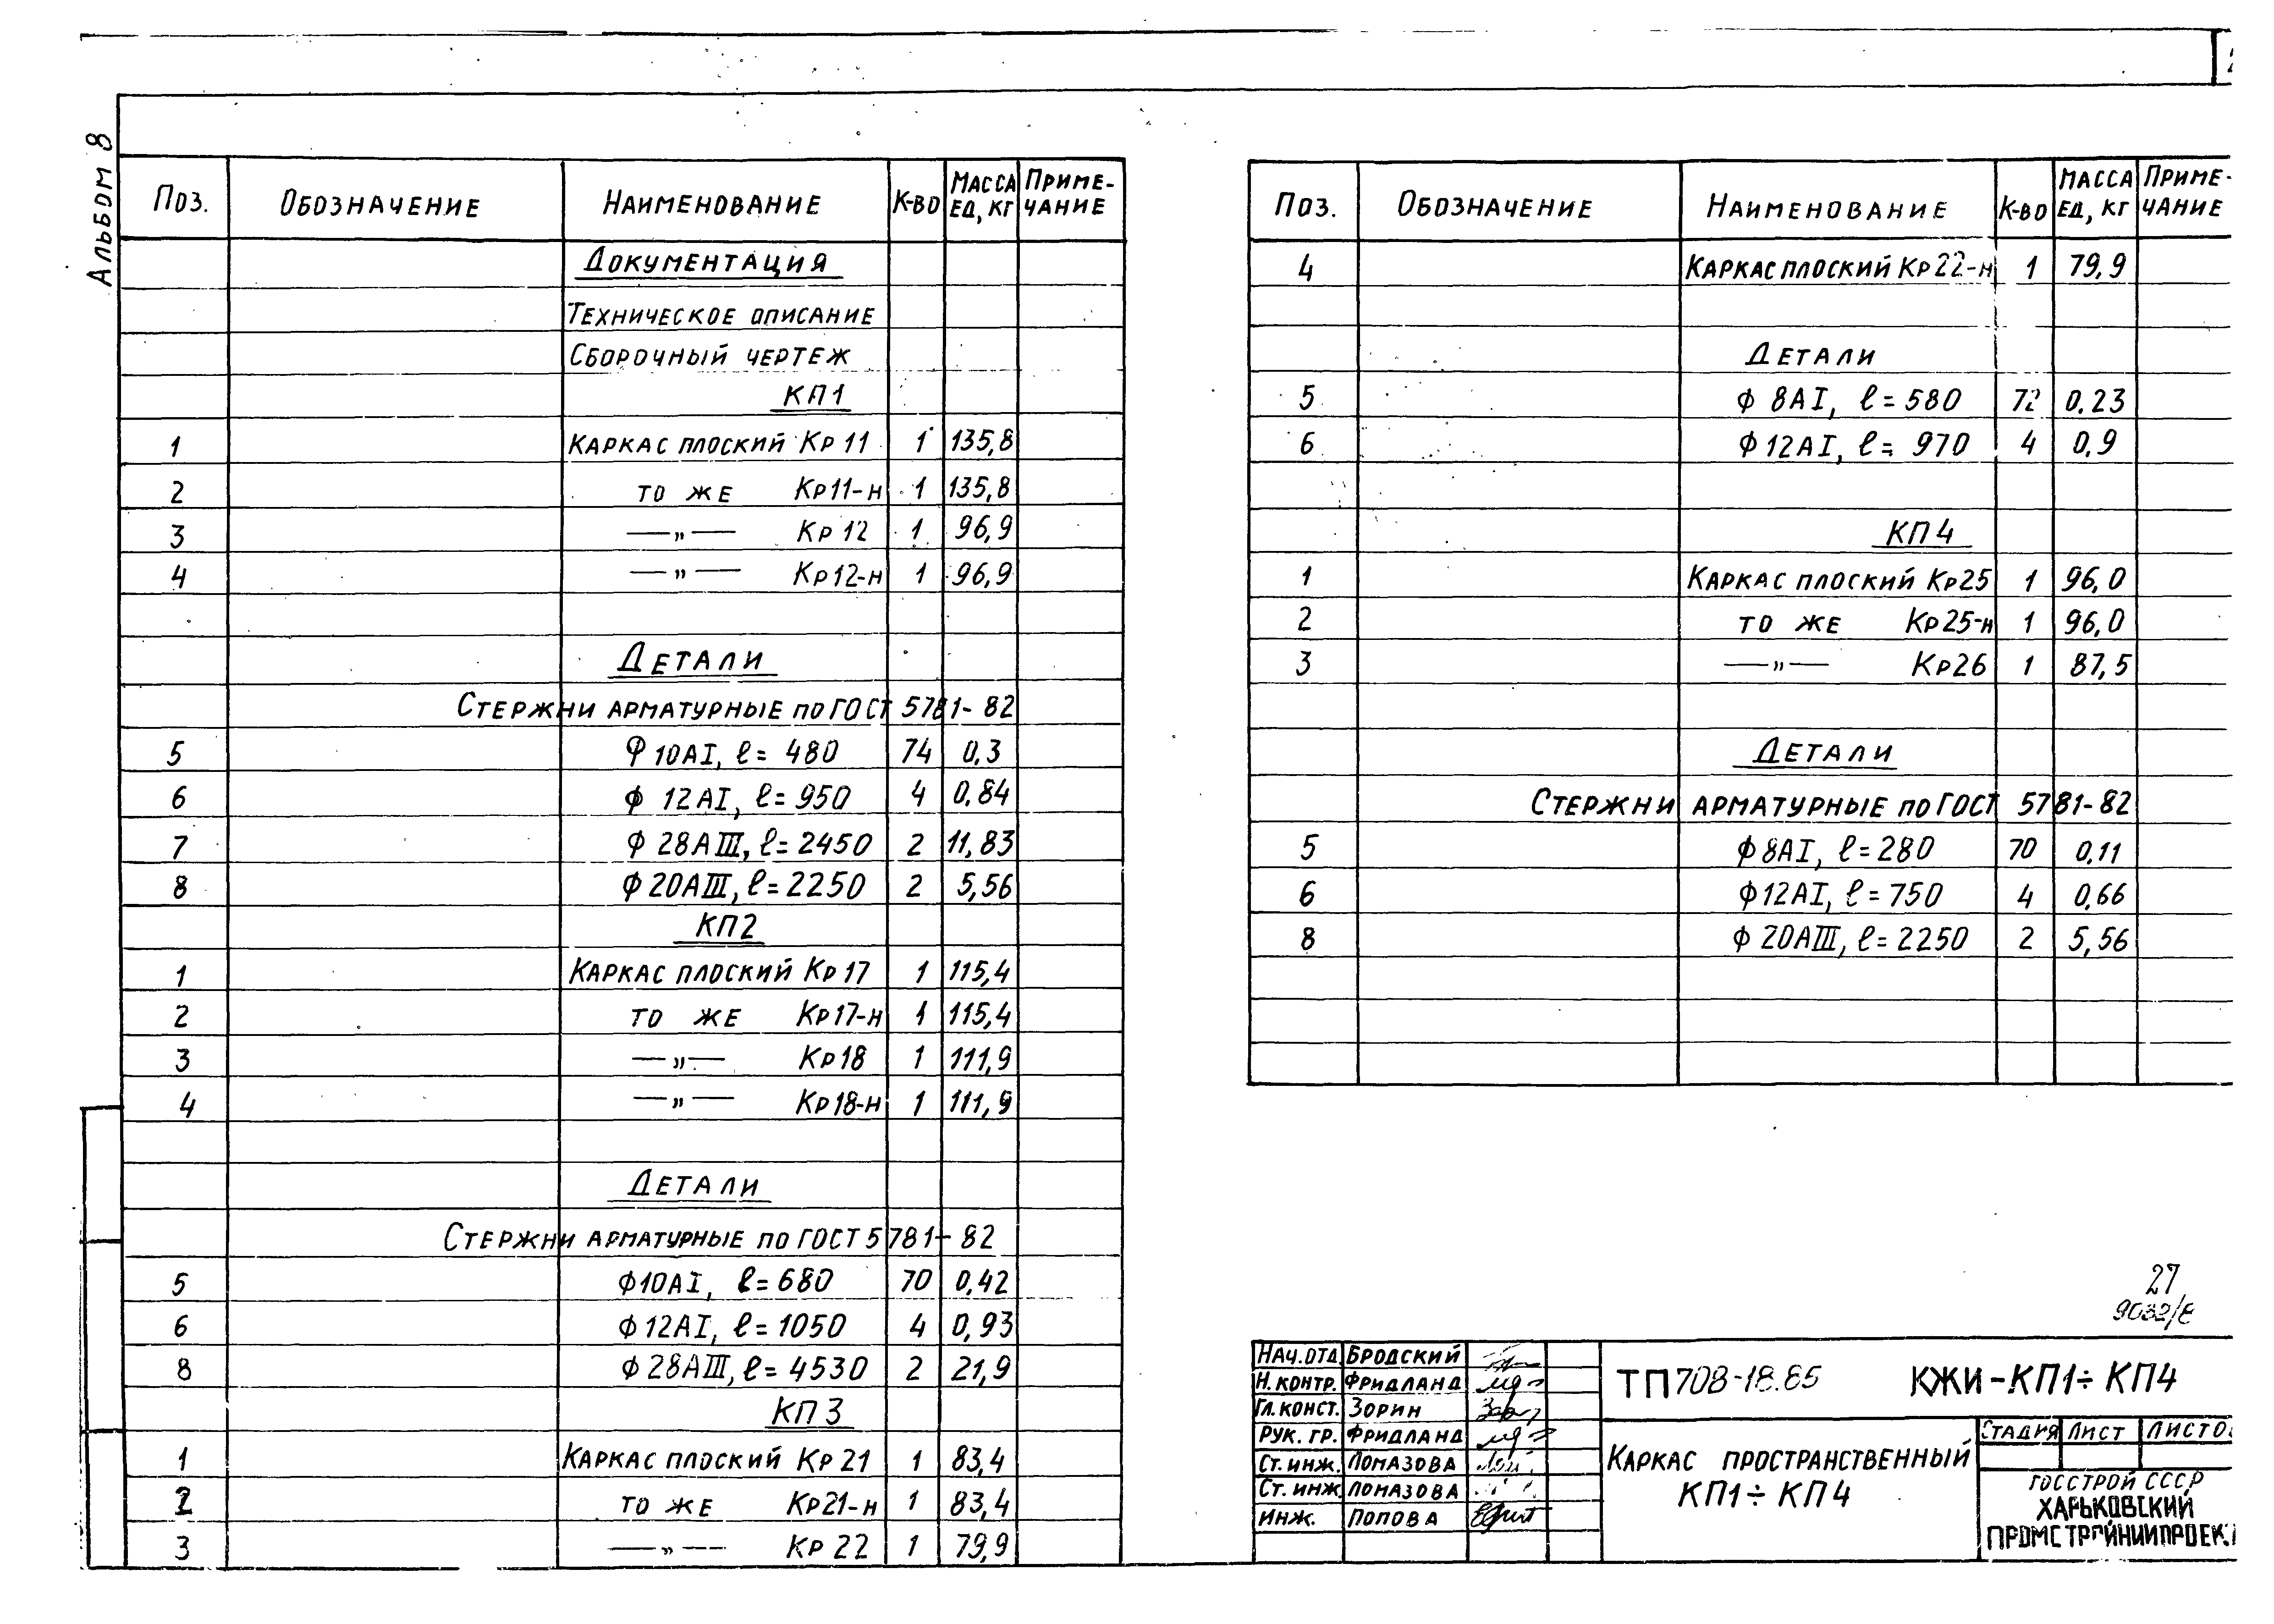 Альбом 8
Поз. Обозначение Наименование К-во Масса ед, кг Приме-чание
Документация
Техническое описание
Сборочный чертеж
КП1
1 Каркас плоский Кр 11 1 135,8
2 то же Кр11-н 1 135,8
3 —„— Кр 12 1 96,9
4 —„— Кр12-н 1 96,9
Детали
Стержни арматурные по ГОСТ 5781-82
5 ф 10АI, ℓ= 480 74 0,3
6 ф 12АI, ℓ=950 4 0,84
7 ф 28АIII, ℓ=2450 2 11,83
8 ф 20АIII, ℓ=2250 2 5,56
КП2
1 Каркас плоский Кр 17 1 115,4
2 то же Кр17-н 1 115,4
3 —„— Кр18 1 111,9
4 —„— Кр18-н 1 111,9
Детали
Стержни арматурные по ГОСТ 5781-82
5 ф10АI, ℓ=680 70 0,42
6 ф12АI, ℓ=1050 4 0,93
8 ф28АIII, ℓ=4530 2 21,9
КП3
1 Каркас плоский Кр 21 1 83,4
2 то же Кр21-н 1 83,4
3 —„— Кр 22 1 79,9
Поз. Обозначение Наименование К-во Масса ед, кг Приме-чание
4 Каркас плоский Кр22-н 1 79,9
Детали
5 ф 8АI, ℓ=580 72 0.23
6 ф12АI, ℓ= 970 4 0,9
КП4
1 Каркас плоский Кр25 1 96,0
2 то же Кр25-н 1 96,0
3 —„— Кр26 1 87,5
Детали
Стержни арматурные по ГОСТ 5781-82
5 ф8АI, ℓ=280 70 0,11
6 ф12АI, ℓ=750 4 0,66
8 ф 20АIII, ℓ=2250 2 5,56
27
9032/8
Нач.отд. Бродский
Н. контр. Фридланд
Гл. конст. Зорин
Рук. гр. Фридланд
Ст. инж. Ломазова
Ст. инж. Ломазова
Инж. Попова
ТП 708-18.85 КЖИ-КП1÷КП4
Каркас пространственный
КП1÷КП4
Стадия Лист
Госстрой СССР
Харьковский